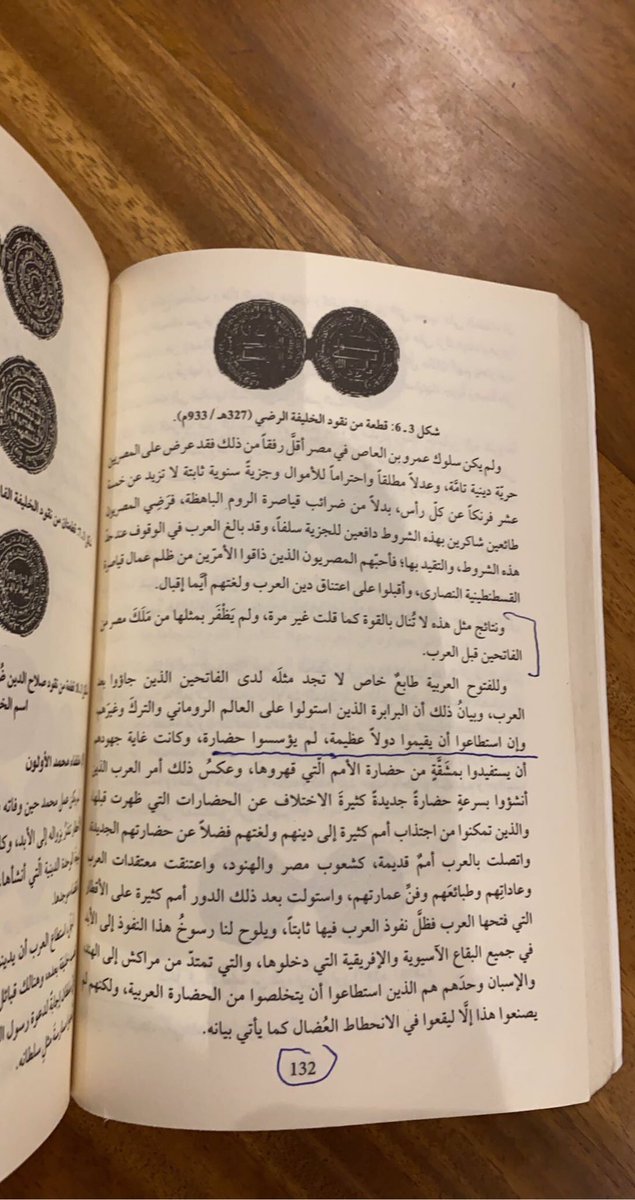 شكل 3ـ6: قطعة من نقود الخليفة الرضي (327هـ / 933م).
ولم يكن سلوك عمرو بن العاص في مصر أقلَّ رفقاً من ذلك فقد عرض على المصريين
حريّة دينية تامَّة، وعدلاً مطلقاً واحتراماً للأموال وجزيةً سنوية ثابتة لا تزيد عن خمسة
عشر فرنكاً عن كلّ رأس، بدلاً من ضرائب قياصرة الروم الباهظة، فرَضِي المصريون
طائعين شاكرين بهذه الشروط دافعين للجزية سلفاً، وقد بالغ العرب في الوقوف عند حدّ
هذه الشروط، والتقيد بها؛ فأحبّهم المصريون الذين ذاقوا الأمرّين من ظلم عمال قياصرة
القسطنطينية النصارى، وأقبلوا على اعتناق دين العرب ولغتهم أيَّما إقبال.
ونتائج مثل هذه لا تُنال بالقوة كما قلت غير مرة، ولم يَظْفَر بمثلها من مَلَكَ مصر من
الفاتحين قبل العرب.
وللفتوح العربية طابعٌ خاص لا تجد مثلَه لدى الفاتحين الذين جاؤوا بعد
العرب، وبيانُ ذلك أن البرابرة الذين استولوا على العالم الروماني والتركَ وغيرَهم
وإن استطاعوا أن يقيموا دولاً عظيمة، لم يؤسسوا حضارة، وكانت غاية جهودهم
أن يستفيدوا بمشقَّةٍ من حضارة الأمم الّتي قهروها، وعكسُ ذلك أمر العرب الذين
أنشؤوا بسرعةٍ حضارةً جديدةً كثيرةَ الاختلاف عن الحضارات التي ظهرت قبلها
والذين تمكنوا من اجتذاب أمم كثيرة إلى دينهم ولغتهم فضلاً عن حضارتهم الجديدة
واتصلت بالعرب أممٌ قديمة، كشعوب مصر والهنود، واعتنقت معتقدات العرب
وعاداتِهم وطبائعَهم وفنَّ عمارتهم، واستولت بعد ذلك الدور أمم كثيرة على الأقطار
التي فتحها العرب فظلَّ نفوذ العرب فيها ثابتاً، ويلوح لنا رسوخُ هذا النفوذ إلى الأبد
في جميع البقاع الآسيوية والإفريقية التي دخلوها، والتي تمتدّ من مراكش إلى الهند
والإسبان وحدَهم هم الذين استطاعوا أن يتخلصوا من الحضارة العربية، ولكنهم لم
يصنعوا هذا إلَّا ليقعوا في الانحطاط العُضال كما يأتي بيانه.
132